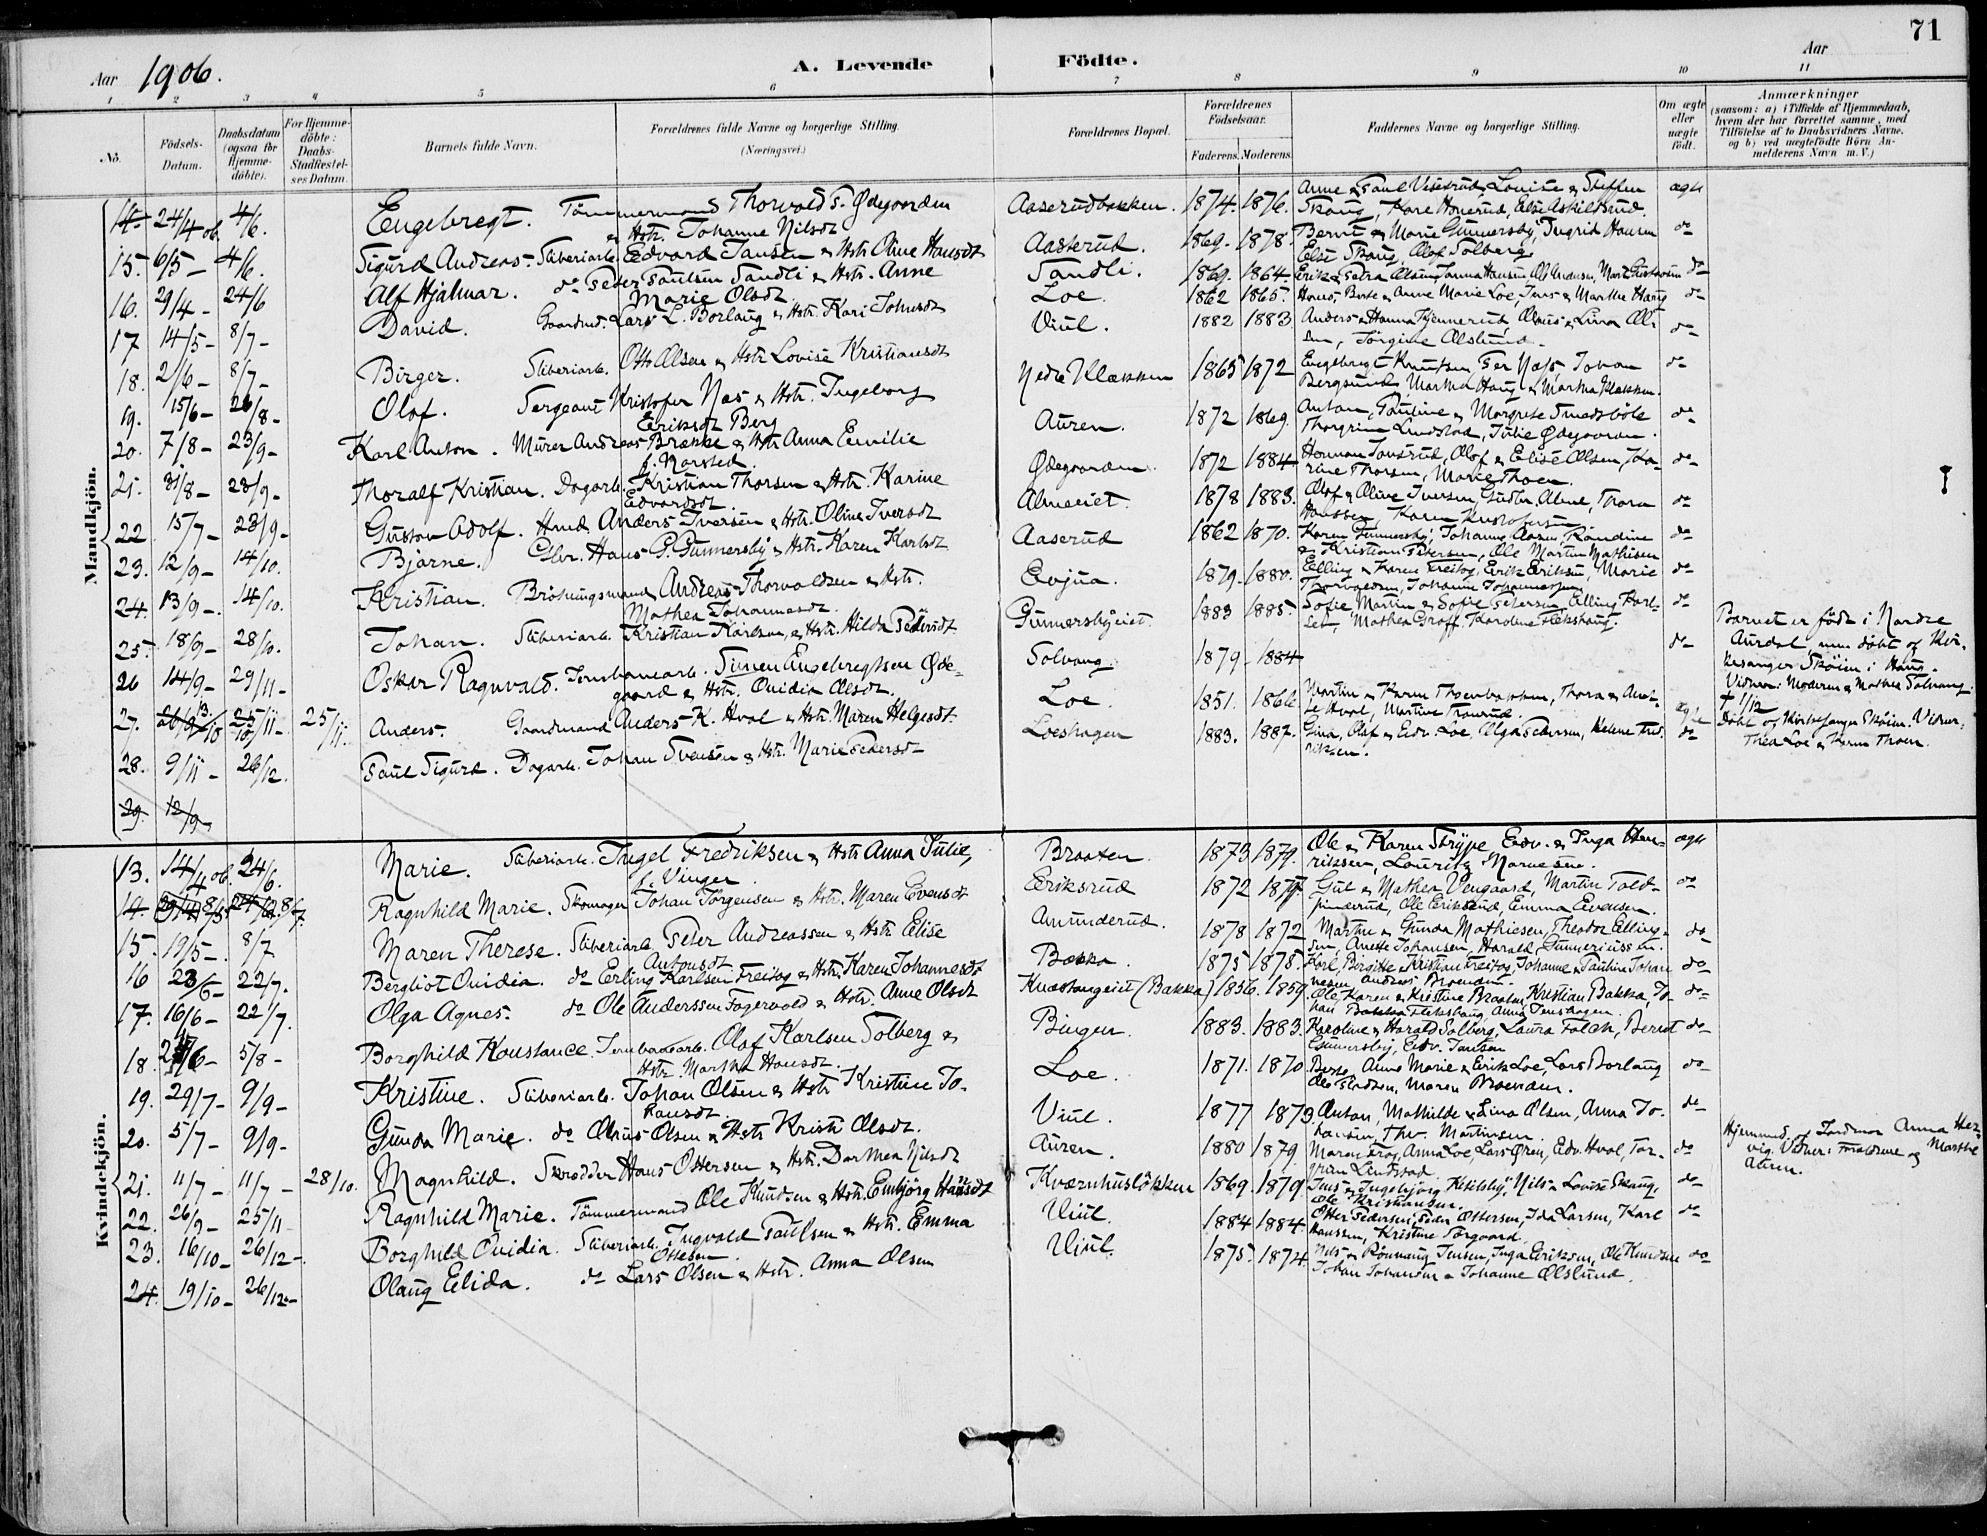 71
Aar 1906. A. Levende Födte. Aar
1 2 3 4 5 6 7 8 9 10 11
No. Födsels-Datum. Daabsdatum (ogsaa for Hjemmedöbte). For Hjemmedöbte: Daabs-Stadfæstelses Datum. Barnets fulde Navn. Forældrenes fulde Navne og borgerlige Stilling. (Næringsvei.) Forældrenes Bopæl. Forældrenes Födselsaar. Faderens. Moderens. Faddernes Navne og borgerlige Stilling. Om ægte eller uægte födt. Anmærkninger (saasom: a) i Tilfælde af Hjemmedaab, hvem der har forrettet samme, med Tilföielse af to Daabsvidners Navne, og b) ved uægtefödte Börn Anmelderens Navn m. V.)
Mandkjön.
14. 24/4 06. 4/6. Engebregt. Tömmermand Thorvald S. Ødegaarden & Hstr. Johanne Nilsdt Aaserudbakken. 1874. 1876. Anne & Paul Viserud, Louise & Steffen Skaug, Kare Honerud, Else Askildsrud. ægte
15. 6/5 - 4/6. Sigurd Andreas. Sliberiarb. Edvard Jansen & Hstr Oline Hansdt Aaserud. 1869. 1878. Bernt & Marie Gunnersby, Ingrid Hansen Else Skaug, Olaf Solberg do
16. 29/4 - 24/6 Alf Hjalmar. do Peder Paulsen Sandli & Hstr. Anne Marie Olsdt Sandli. 1869. 1864. Erik & Petra Olsen, Hansen do
17 14/5 - 8/7 - David. Gaardmd. Lars L. Borlaug & Hstr. Kari Johnsdt Loe. 1862 1865. Hans, Berte & Anne Marie Loe, Jens & Marthe Haug do
18. 2/6 - 8/7 - Birger. Sliberiarb. Otto Olsen & Hstr Lovise Kristiansdt Viul. 1882 1883 Anders & Hanna Hjennerud, Olaus & Lina Olsen, Jörgine Alslund. do
19. 15/6 - 26/8 - Olaf. Sergeant Kristofer Næs & Hstr. Ingeborg Eriksdt Berg Nedre Klækken 1865 1872 Engebregt Knutsen, Per Næss, Johan Bergsund, Martha Haug & Martha Klækken. do
20. 7/8 - 23/9 - Karl Anton. Murer Andreas Brække & Hstr Anna Emilie f. Narsted. Auren. 1872 1869 Anton, Pauline & Margrete Smedsböle Thorgrim Lundstad, Julie Ødegaarden. do
21. 31/8 - 23/9 - Thoralf Kristian. Dagarb. Kristian Thorsen & Hstr. Karine Edvardsdt Ødegaarden. 1872 1884 Herman Tonsrud, Olaf & Elise Olsen, Karine Thorsen, Marie Thoen. do
22 15/7 - 23/9 - Gustav Adolf. Hmd Anders Iversen & Hstr. Oline Iversdt Almeiet. 1878 1883. Olaf & Olive Iversen, Thora Hanssen, Karen Kristofersen do
23. 12/9 - 14/10. Bjarne. Hans P. Gunnersby & Hstr. Karen Karlsdt Aaserud 1862 1870. Karen Gunnersby, Johanne Aasen, Randine & Kristian Petersen, Ole Martin Mathiesen do
24. 13/9 -. 14/10. Kristian. Bröhnugsmand Andreas Thorvaldsen & Hstr. Mathea Johannesdt. Evjua. 1879. 1880. Elling & Karen Freitog, Erik Eriksen, Marie Thorvaldsen, Johanne Johannessen do
25. 18/9 - 28/10. Johan. Sliberiarb. Kristian Karlsen, & Hstr. Hilda Pedersdt Gunnersbyeiet. 1883 1885. Sofie, Martin & Sofie Petersen, Elling Karlsen, Mathea Graff, Karoline Flekshaug. do
26 14/9 - 29/11 - Oskar Ragnvald. Jernbanearb. Simen Engebregtsen Ødegaard & Hstr. Ovidia Olsdt. Solvang. 1879 - 1884 do Barnet er födt i Nordre Aurdal men döbt af Kirkesanger Sköien i Haug. Vidner: Moderen & Mathea Solvang † 1/12
27. 26/9 13/10 25/11 - 25/11. Anders. Gaardmand Anders K. Hval & Hstr. Maren Helgesdt. Loe. 1851. 1866 Martin & Karen Thoenbakken, Thora & Hval, Martine Tronrud. ægte Döbt af Kirkesanger Sköien. Vidner: Thea Loe & Karen Thoen.
28. 9/11 - 26/12. Paul Sigurd. Dagarb. Johan Svensen & Hstr. Marie Pedersdt Loeshagen 1883. 1887. Gina, Olaf & Edv. Loe, Olga Pedersen, Helene Fredriksen. do
29. 12/9 -
Kvindekjön.
13. 14/4 06. 24/6. Marie. Sliberiarb. Ingel Fredriksen & Hstr Anna Julie, f. Vinger Braaten. 1873 1879. Ole & Karen Strype, Edv. & Inga Henriksen, Lauritz Marnesen. ægte
14. 8/5 8/7. Ragnhild Marie. Skomager Johan Jörgensen & Hstr. Maren Evensdt Eriksrud 1872 1877. Gul & Mathea Vengaard, Martin Toldpinderud, Ole Eriksrud, Emma Evensen. do
15. 19/5 - 8/7 Maren Therese. Sliberiarb. Peter Andreassen & Hstr Elise Antonsdt Amunderud. 1878 1872 Martin & Gunda Mathiesen, Theodor Ellingsen, Anette Johansen, Harald Gunneriussen. do
16 23/6 - 22/7. Bergliot Ovidia. do Erling Karlsen Freitog & Hstr. Karen Johannesdt Bakka. 1875 1875. Karl, Birgitte & Kristian Freitog, Johanne & Pauline Johannesen, Andreas Braenden. do
17. 16/6 - 22/7. Olga Agnes. do Ole Anderssen Fagervold & Hstr. Anne Olsdt Knæstangeiet (Bakka) 1856. 1859. Ole, Karen & Kristine Braaten, Kristian Bakka, Johan Flekshaug, Anna Jenshagen. do
18. 24/6 - 5/8 - Borghild Konstance. Jernbanearb. Olaf Karlsen Solberg & Hstr. Martha Hansdt. Bingen. 1883. 1883. Karoline & Harald Solberg, Laura Falch, Bernt Gunnersby, Edv. Jansen do
19. 29/7 - 9/9 - Kristine. Sliberiarb. Johan Olsen & Hstr Kristine Johansdt. Loe. 1871. 1870 Berte, Anne Marie & Erik Loe, Lars Borlaug Maren Braenden. do
20. 5/7 - 9/9 - Gunda Marie. do Olaus Olsen & Hstr Kristi Olsdt. Viul. 1877 1879 Anton, Mathilde & Lina Olsen, Anna Johansen, Thv. Martinsen. do
21. 11/7 - 11/7 - 28/10. Magnhild. Skrædder Hans Ottersen & Hstr. Dorthea Nilsdt Auren. 1880 1879. Maren Frog, Anna Loe, Lars Øren, Edv. Hval, Torgrim Lindstad. do Hjemmed. af Jordmor Anna Hervig. Vidner: Forældrene og Marthe Auren.
22. 26/9 - 25/11 - Ragnhild Marie. Tömmermand Ole Knudsen & Hstr. Embjörg Hansdt Kværnhuslökken 1869. 1879 Jens & Ingebjörg Kihlsby, Nils & Lovise Skaug, Ole Kristiansen. do
23. 16/10 - 26/12 -. Borghild Ovidia. Sliberiarb. Ingvald Paulsen & Hstr. Emma Ottesen Viul. 1884 1884. Otter Pedersen, Peder Ottersen, Ida Larsen, Karl Hanssen, Kristine Torgaard. do
24. 19/10 - 26/12 - Olaug Elida. do Lars Olsen & Hstr. Anna Olsen Viul. 1875. 1874. Nils & Rönnaug Jensen, Inga Eriksen, Ole Knudsen Johan Johansen & Johanne Alslund. do